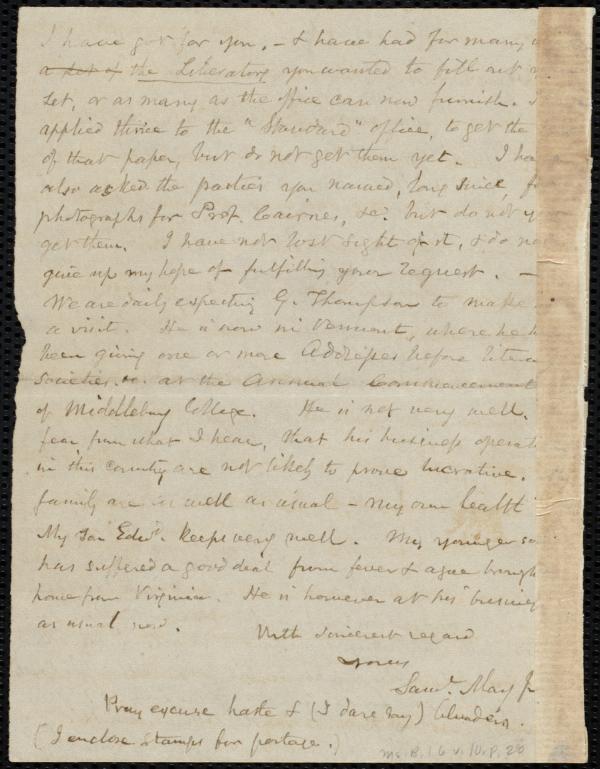 I have got for you, - & have had for many
a set of the Liberators you wanted to fill out
set, or as many as the office can now furnish.
applied thrice to the "Standard" office, to get the
of that paper, but do not get them yet. I ha
also asked the parties you named, long since, f
photographs for Prof. Cairnes, &c. but do not y
get them. I have not lost sight of it, & do no
give up my hope of fulfilling your request. -
We are daily expecting G. Thompson to make
a visit. He is now in Vermont, where he h
been giving one or more Addresses before litera
societies &c. at the Annual Commencement
of Middlebury College. He is not very well.
fear from what I hear, that his business operat
in this country are not likely to prove lucrative.
family are as well as usual - my own health
My son Edwd. keeps very well. My younger so
has suffered a good deal from fever & ague brough
home from Virginia. He is however at his business
as usual now.
With sincerest regard
Yours
Saml. May Jr
Pray excuse haste & (I dare say) blunders.
(I enclose stamps for postage.)
Ms. B. 1.6 v. 10, p. 20